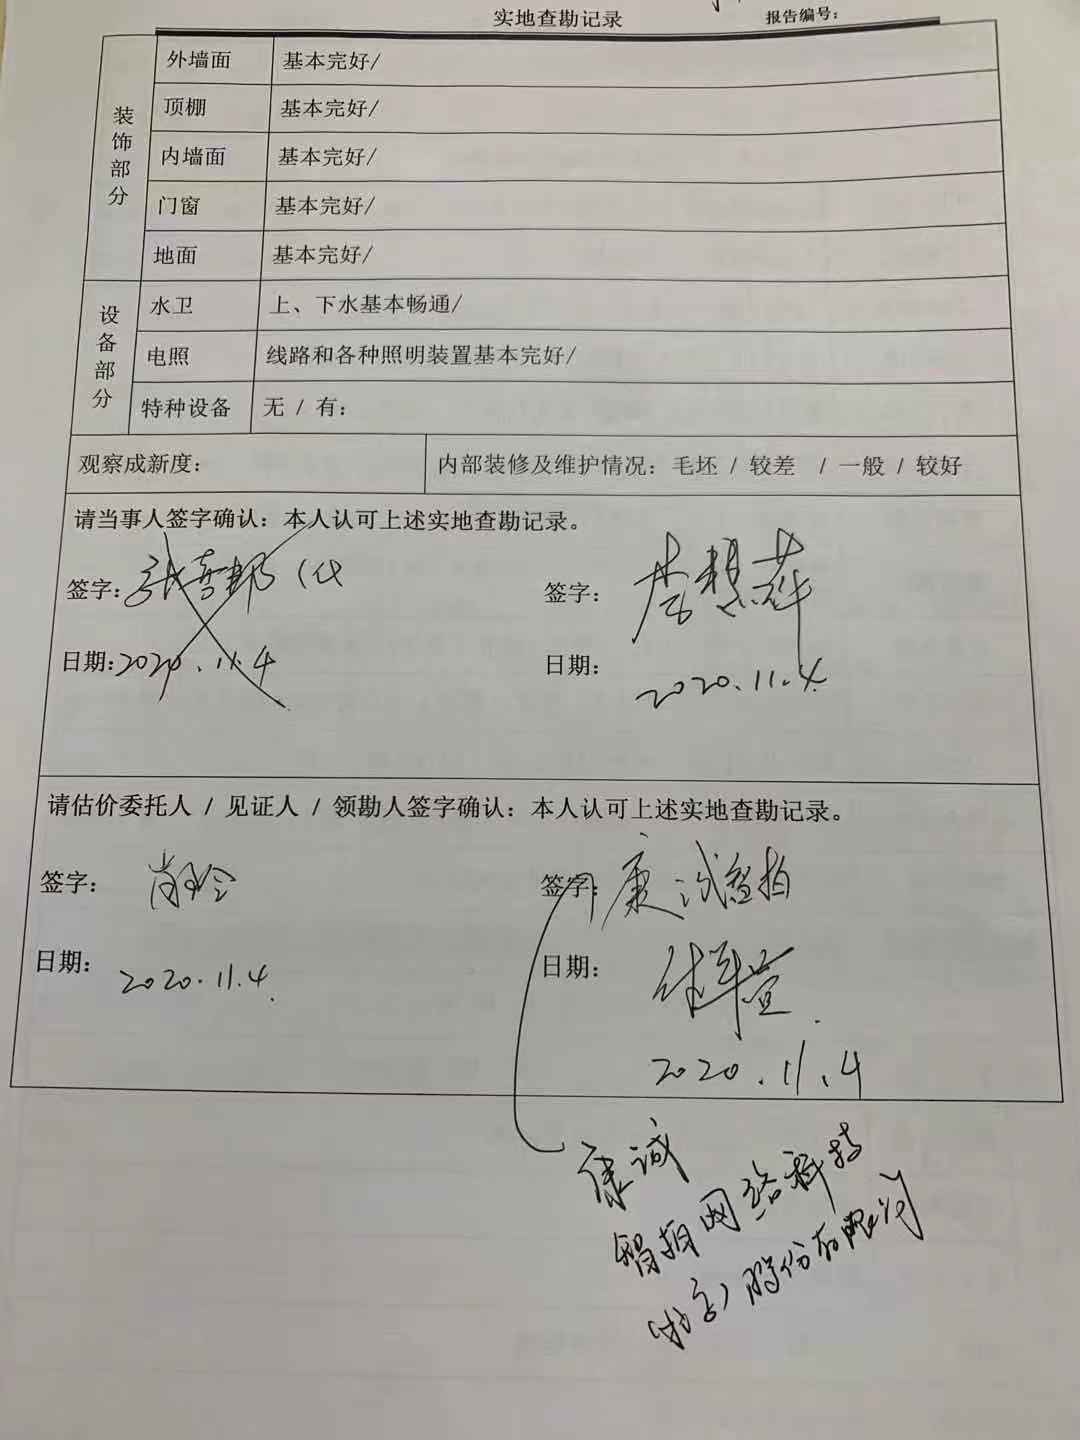 实地查勘记录 报告编号：
装饰部分
外墙面 基本完好/
顶棚 基本完好/
内墙面 基本完好/
门窗 基本完好/
地面 基本完好/
设备部分
水卫 上、下水基本畅通/
电照 线路和各种照明装置基本完好/
特种设备 无 / 有：
观察成新度： 内部装修及维护情况：毛坯 / 较差 / 一般 / 较好
请当事人签字确认：本人认可上述实地查勘记录。
签字： 签字：
日期：2020.11.4 日期：
2020.11.4
请估价委托人 / 见证人 / 领勘人签字确认：本人认可上述实地查勘记录。
签字： 签字：康诚智拍
日期： 日期：
2020.11.4
2020.11.4
康诚
智拍网络科技
（北京）股份有限公司